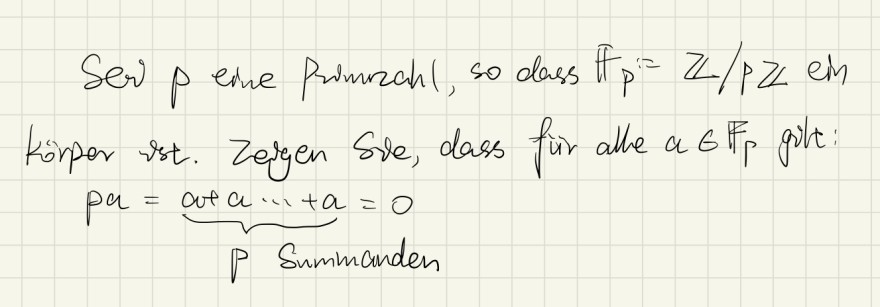 Sei p eine Primzahl, so dass 𝔽p := ℤ/pℤ ein
Körper ist. Zeigen Sie, dass für alle a ∈ 𝔽p gilt:
pa = a+a ... +a = 0
p Summanden